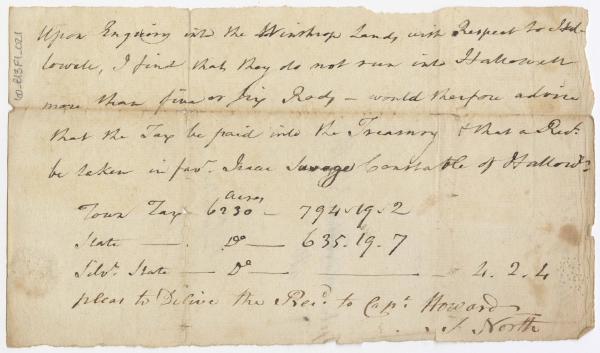 Upon Enquiry into the Winthrop Lands with Respect to Hal-
lowell, I find that they do not run into Hallowell
more than five or six Rods – would therefore advise
that the Tax be paid into the Treasury & that a Rect.
be taken in favr. Isaac Savage Constable of Hallowell
Acres
Town Tax 6230 – 794..19..2
State — . Do — 635..19..7
Silvr. State — Do — — 4..2..4
pleas to Deliver the Rect. to Capt. Howard
J. North